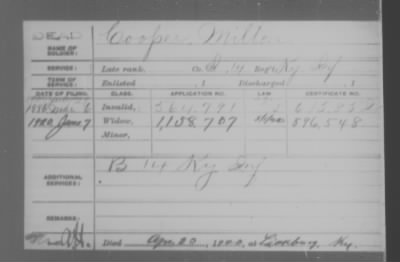 DEAD
NAME OF SOLDIER: Cooper, Milton
SERVICE: Late rank, Co. D, 14 Reg't Ky. Inf
TERM OF SERVICE: Enlisted , 1 Discharged , 1
DATE OF FILING. CLASS. APPLICATION NO. LAW. CERTIFICATE NO.
Invalid, 564,791
1900 June 7 Widow, 1,108,707 896,548
Minor,
ADDITIONAL SERVICES: B 14 Ky Inf
REMARKS:
Died Apr 20, 1900, at Ky.